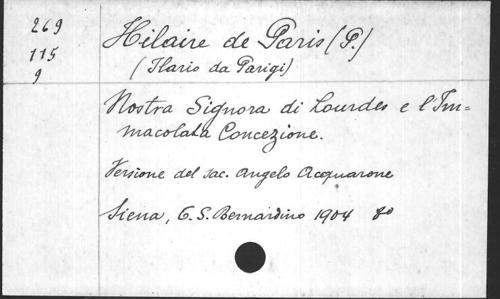 269
115
9
Hilaire de Paris (P.)
(Ilario da Parigi)
Nostra Signora di Lourdes e l'Im=
macolata Concezione.
Versione del sac. Angelo Acquarone
Siena, C. S. Bernardino 1904 8°